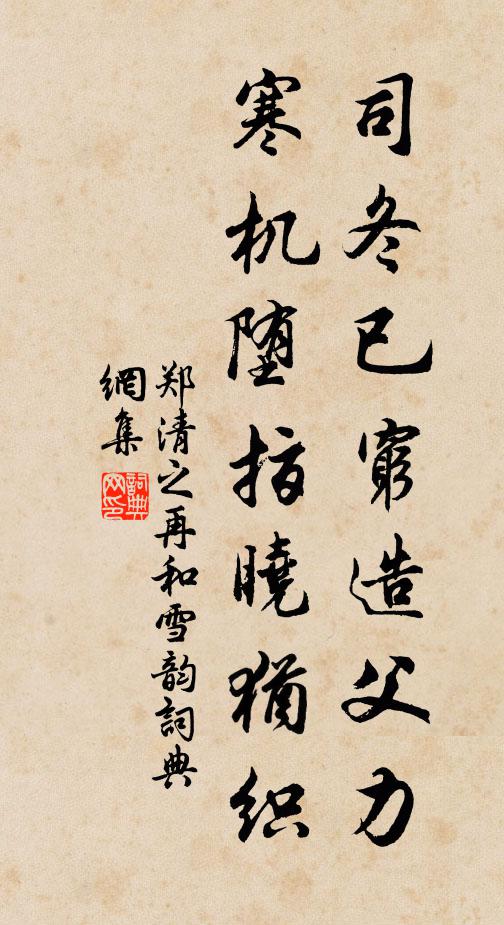 司冬已窮造父力
寒机堕指曉猶织
郑清之再和雪韵詞典
網集
詞典
网印